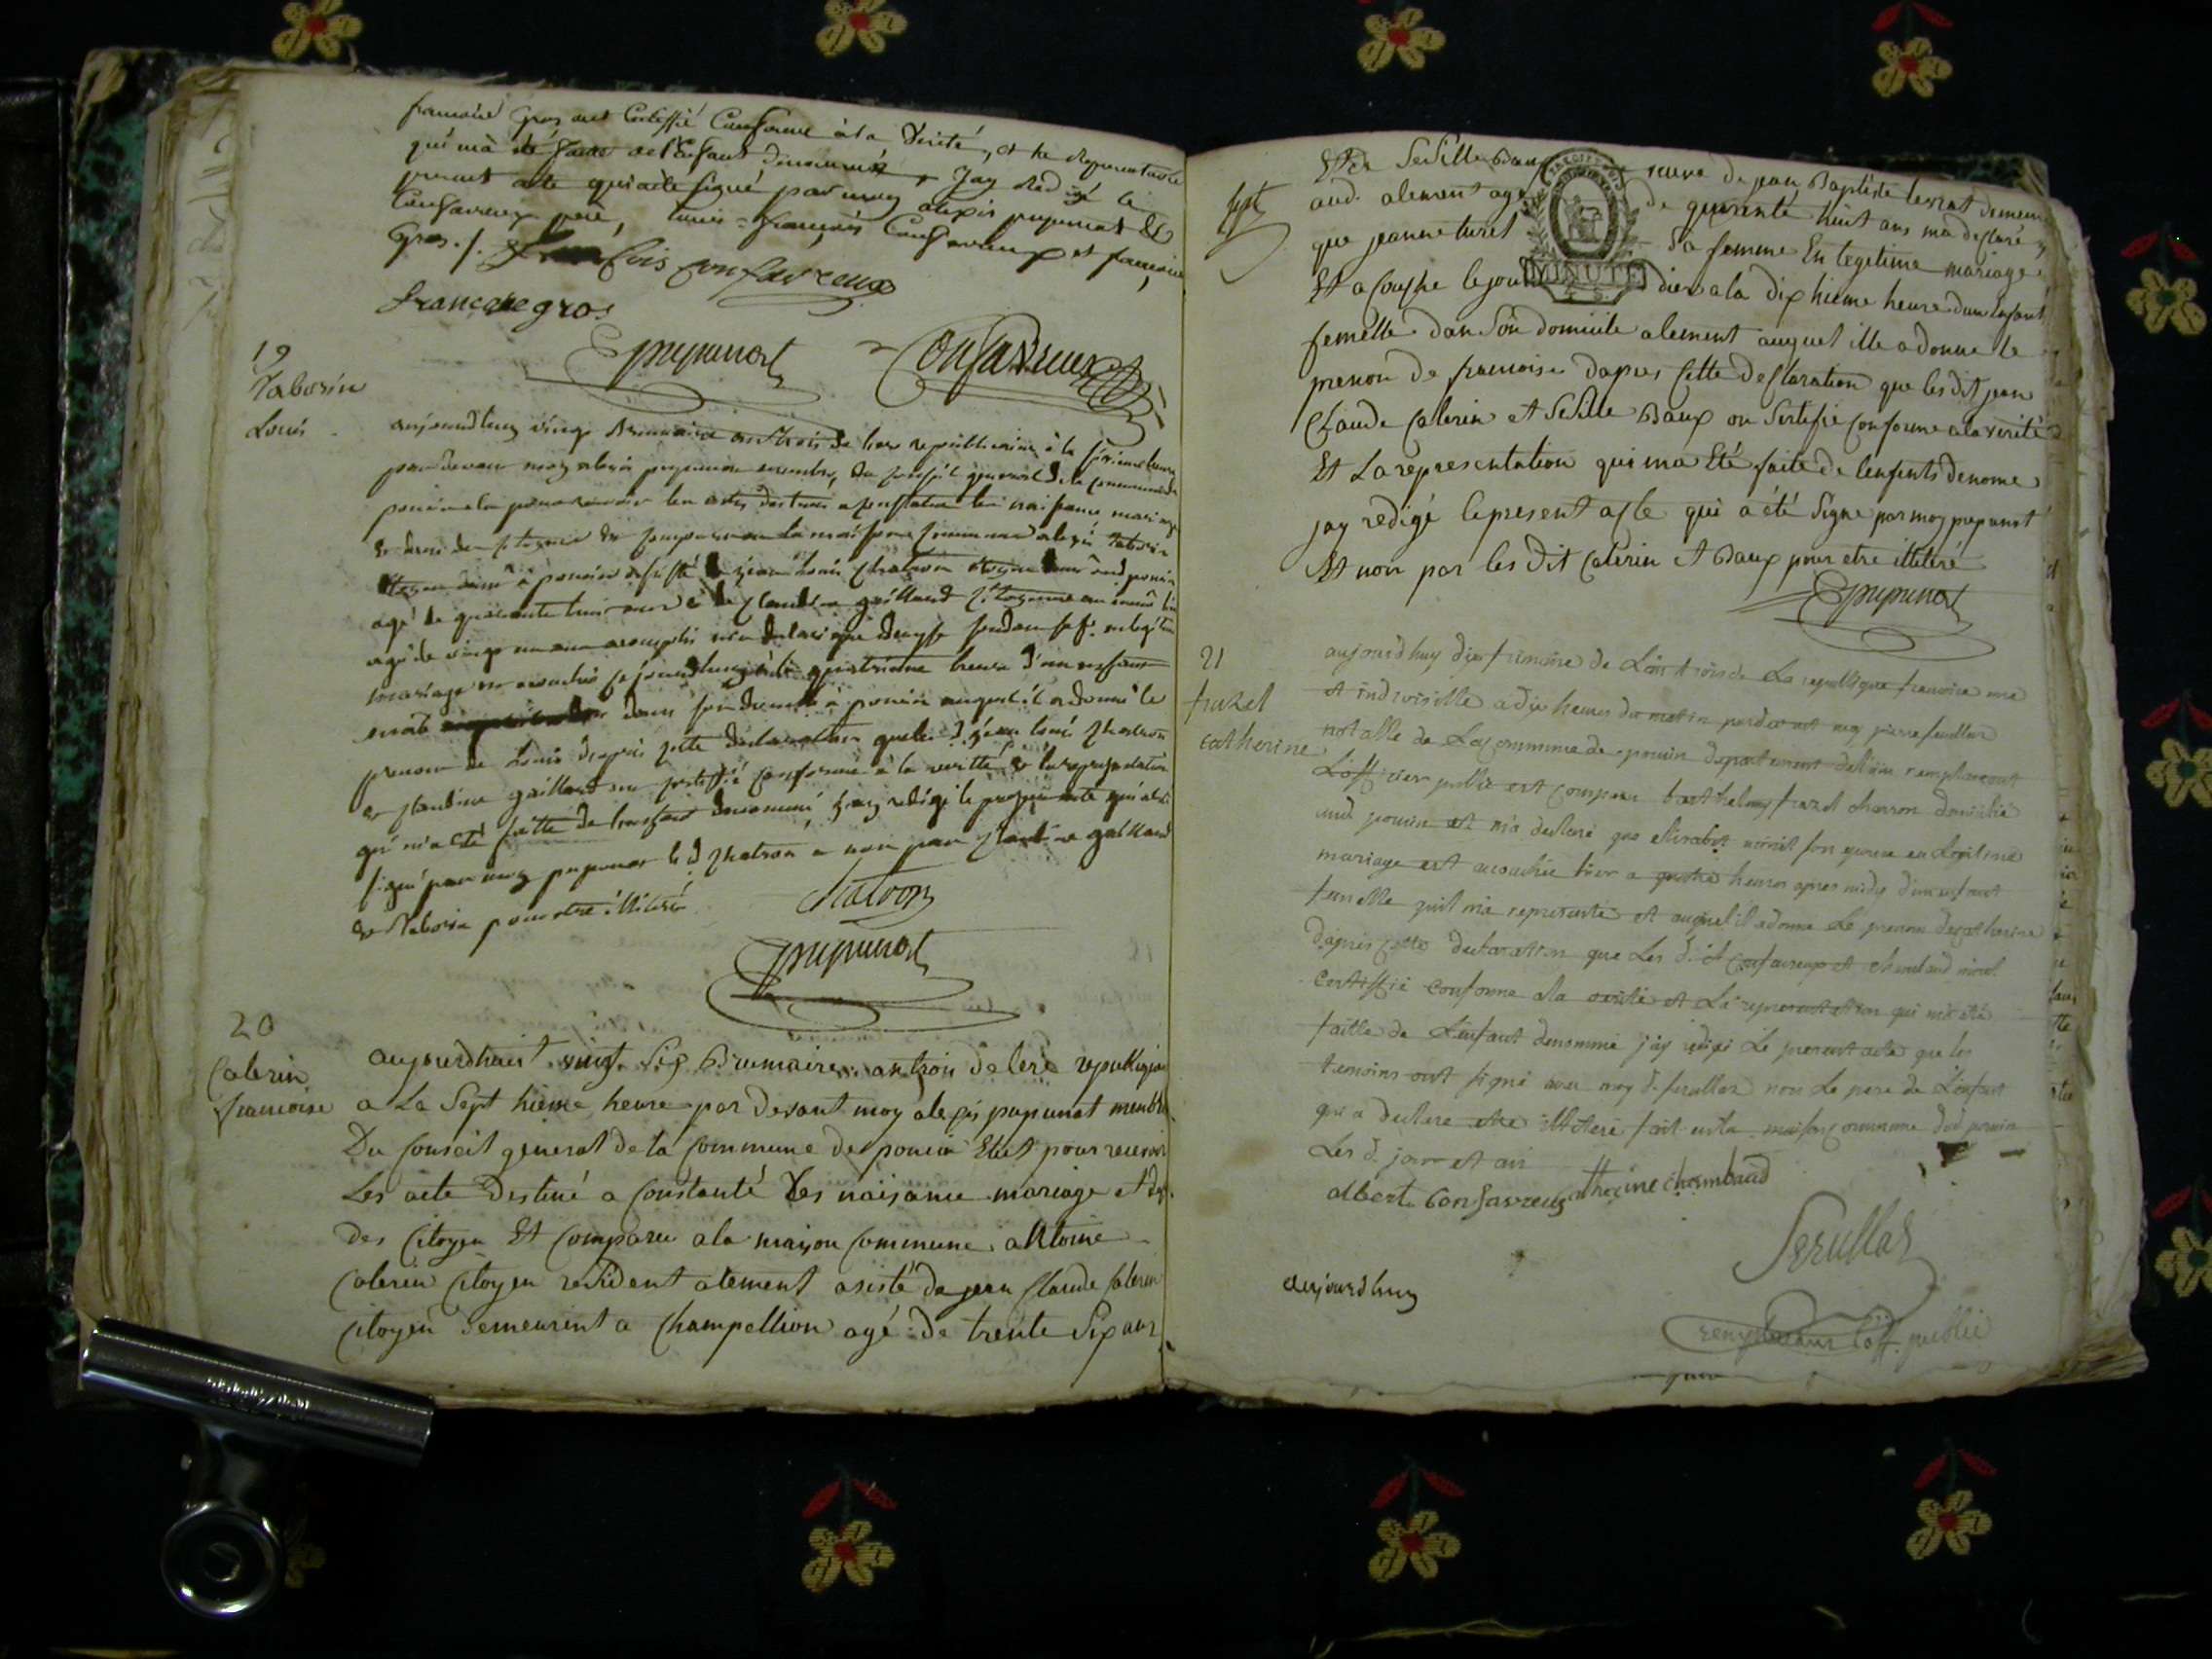 francoise Gros ont Certiffié Conforme à la Vérité, et la Representation
qui m'a été faitte de l'Enfant denommé, Jay Redigé le
present acte qui a été signé par moy alexis pupunat &
Confavreux père, Louis françois Confavreux et francoise
Gros ./.
francois confavreux
francoise gros
pupunat Confavreux
19
Taborin
Louis
aujourdhuy vingt Brumaire an trois de l'ere republicaine à la heure
pardevant moy alexis pupunat membre du conseil general de la commune de
poncin elu pour recevoir les actes destinés a constater les naissance mariage
& deces des citoyens est comparu en la maison commune alexis Taborin
citoyen dem.t à poncin assisté de jean Louis Chatron citoyen dem.t aud. poncin
agé de quarante trois ans & de Claudine gaillard citoyenne au même lieu
agé de vingt un ans accomplis m'a declaré que sa f.e en legitime
mariage est accouchée ce jourdhuy à la quatrieme heure d'un enfant
male dans son domicile à poncin auquel il a donné le
prenom de Louis d'apres cette declaration que les d. jean Louis Chatron
& Claudine gaillard ont certiffié conforme à la verité & la representation
qui m'a été faitte de l'enfant denommé, j'ay redigé le present acte qui a été
signé par moy pupunat le d. Chatron & non par Claudine gaillard
& Taborin pour etre illiteré
Chatron
pupunat
20
Calerin
francoise
aujourdhuit vingt Six Brumaire an troi de lere republiquen
a La Sept hieme heure par devant moy alexis pupunat membre
Du Conseil general de la Commune de poncin Elut pour recevoir
Les acte Destiné a Constanté Les naisance mariage et
des Citoyen Et Comparu a la maison Commune antoine
Calerin Citoyen resident alement asisté de jean Claude Calerin
Citoyen demeurent a Champellion agé de trente Six ans
Et de Sesille Baux veuve de jean Baptiste levrat demeurant
aud. alement agé de quarente huit ans ma declaré
que jeanne turel Sa femme En legitime mariage
Et a Couche le jour dier a la dix hieme heure dun Enfant
femelle dan Son domicile alement auquel ille a donne le
prenon de francoise dapres Cette declaration que les dit jean
Claude Calerin et Sesille Baux on Sertifie Conforme a la verité
Et La representation qui ma Eté faite de lenfents denome
jay redigé le present acte qui a été Signe par moy pupunat
Et non par les dit Calerin et Baux pour etre illiteré
pupunat
MINUTE
21
frazel
catherine
aujourdhuy dix frimaire de L'an trois de La republique francoise une
et indivisible a dix heures du matin pardevant moy pierre serullaz
notable de La commune de poncin departement de l'ain remplacant
L'officier public est comparu barthelemy frazel charron domicilié
aud poncin et m'a declaré que Elisabet son epouse en Legitime
mariage est accouchée hier a quatre heures apres midy d'un enfant
femelle quil m'a representé et auquel il a donne Le prenom de catherine
d'apres cette declaration que Les d. Confavreux et Chambaud m'ont
Certiffié conforme a la verité et La representation qui m'a été
faitte de L'enfant denommé j'ay redigé Le present acte que les
temoins ont signé avec moy d. serullaz non Le pere de L'enfant
qui a declare etre illiteré fait en la maison commune dud poncin
Les d. jour et an
albert Confavreux catherine chambaud
Serullaz
remplacant l'off. public
aujourdhuy